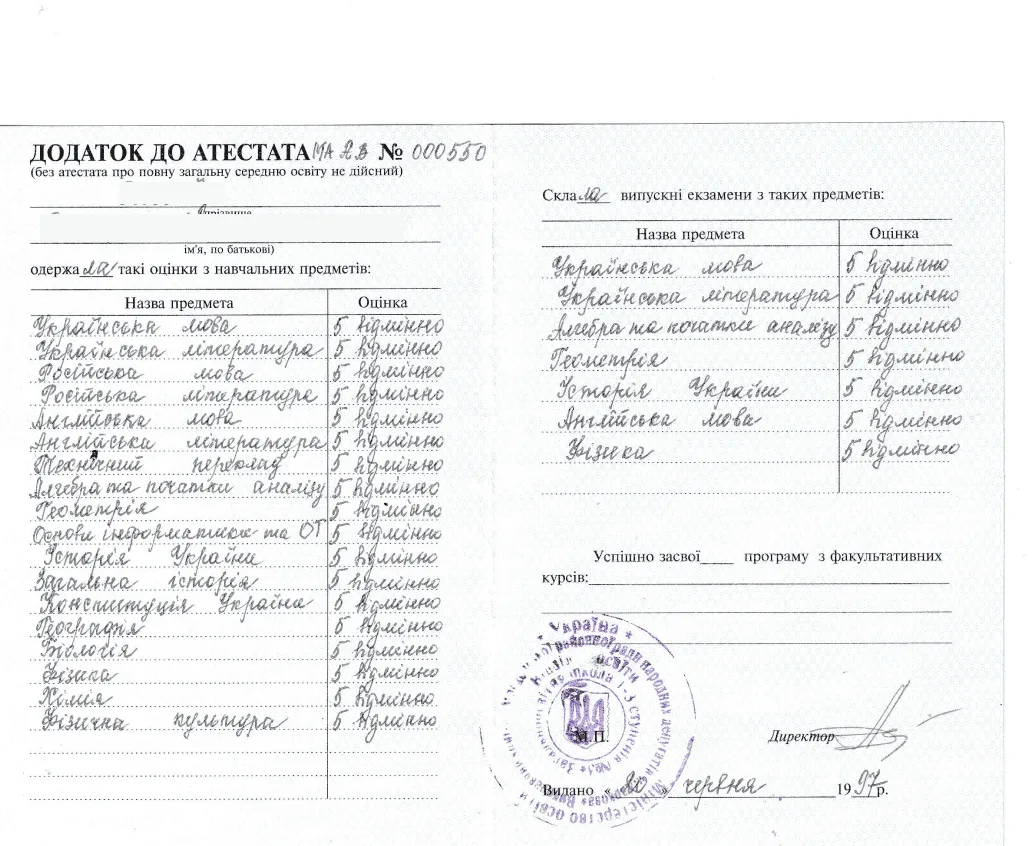 ДОДАТОК ДО АТЕСТАТА МА 2В № 000550
(без атестата про повну загальну середню освіту не дійсний)
прізвище
ім'я, по батькові)
одержала такі оцінки з навчальних предметів:
Назва предмета Оцінка
Українська мова 5 відмінно
Українська література 5 відмінно
Російська мова 5 відмінно
Російська література 5 відмінно
Англійська мова 5 відмінно
Англійська література 5 відмінно
Технічний переклад 5 відмінно
Алгебра та початки аналізу 5 відмінно
Геометрія 5 відмінно
Основи інформатики та ОТ 5 відмінно
Історія України 5 відмінно
Загальна історія 5 відмінно
Конституція України 5 відмінно
Географія 5 відмінно
Біологія 5 відмінно
Фізика 5 відмінно
Хімія 5 відмінно
Фізична культура 5 відмінно
Склала випускні екзамени з таких предметів:
Назва предмета Оцінка
Українська мова 5 відмінно
Українська література 5 відмінно
Алгебра та початки аналізу 5 відмінно
Геометрія 5 відмінно
Історія України 5 відмінно
Англійська мова 5 відмінно
Фізика 5 відмінно
Успішно засвої____ програму з факультативних
курсів:
* Україна *
районної ради народних депутатів
освіти
Міністерство освіти
школа І-3 ступенів №3
М.П.
Директор
Видано « 20 » червня 1997р.